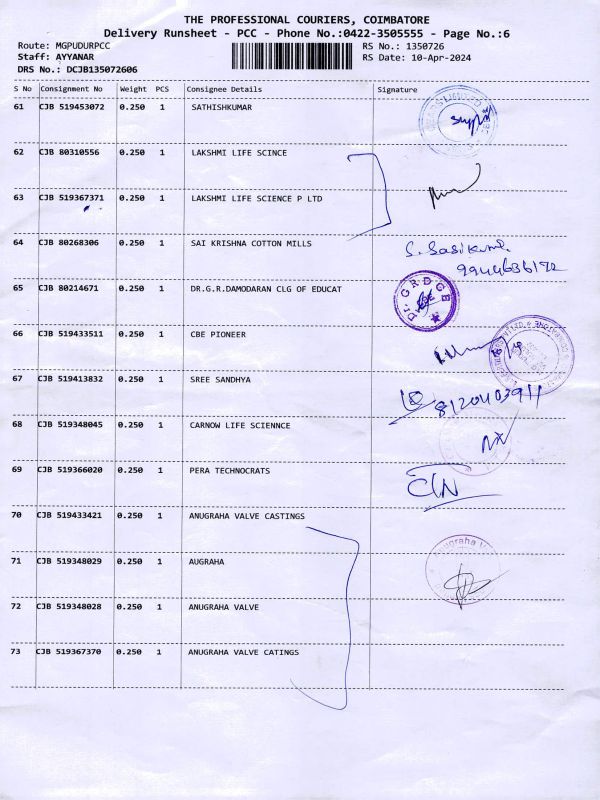 THE PROFESSIONAL COURIERS, COIMBATORE
Delivery Runsheet - PCC - Phone No.:0422-3505555 - Page No.:6
Route: MGPUDURPCC RS No.: 1350726
Staff: AYYANAR RS Date: 10-Apr-2024
DRS No.: DCJB135072606
S No Consignment No Weight PCS Consignee Details Signature
61 CJB 519453072 0.250 1 SATHISHKUMAR
62 CJB 80310556 0.250 1 LAKSHMI LIFE SCINCE
63 CJB 519367371 0.250 1 LAKSHMI LIFE SCIENCE P LTD
64 CJB 80268306 0.250 1 SAI KRISHNA COTTON MILLS S. Sasikumar
9944636172
65 CJB 80214671 0.250 1 DR.G.R.DAMODARAN CLG OF EDUCAT Dr. G R D C E
66 CJB 519433511 0.250 1 CBE PIONEER
67 CJB 519413832 0.250 1 SREE SANDHYA 8120403911
68 CJB 519348045 0.250 1 CARNOW LIFE SCIENNCE
69 CJB 519366020 0.250 1 PERA TECHNOCRATS
70 CJB 519433421 0.250 1 ANUGRAHA VALVE CASTINGS
71 CJB 519348029 0.250 1 AUGRAHA
72 CJB 519348028 0.250 1 ANUGRAHA VALVE
73 CJB 519367370 0.250 1 ANUGRAHA VALVE CATINGS